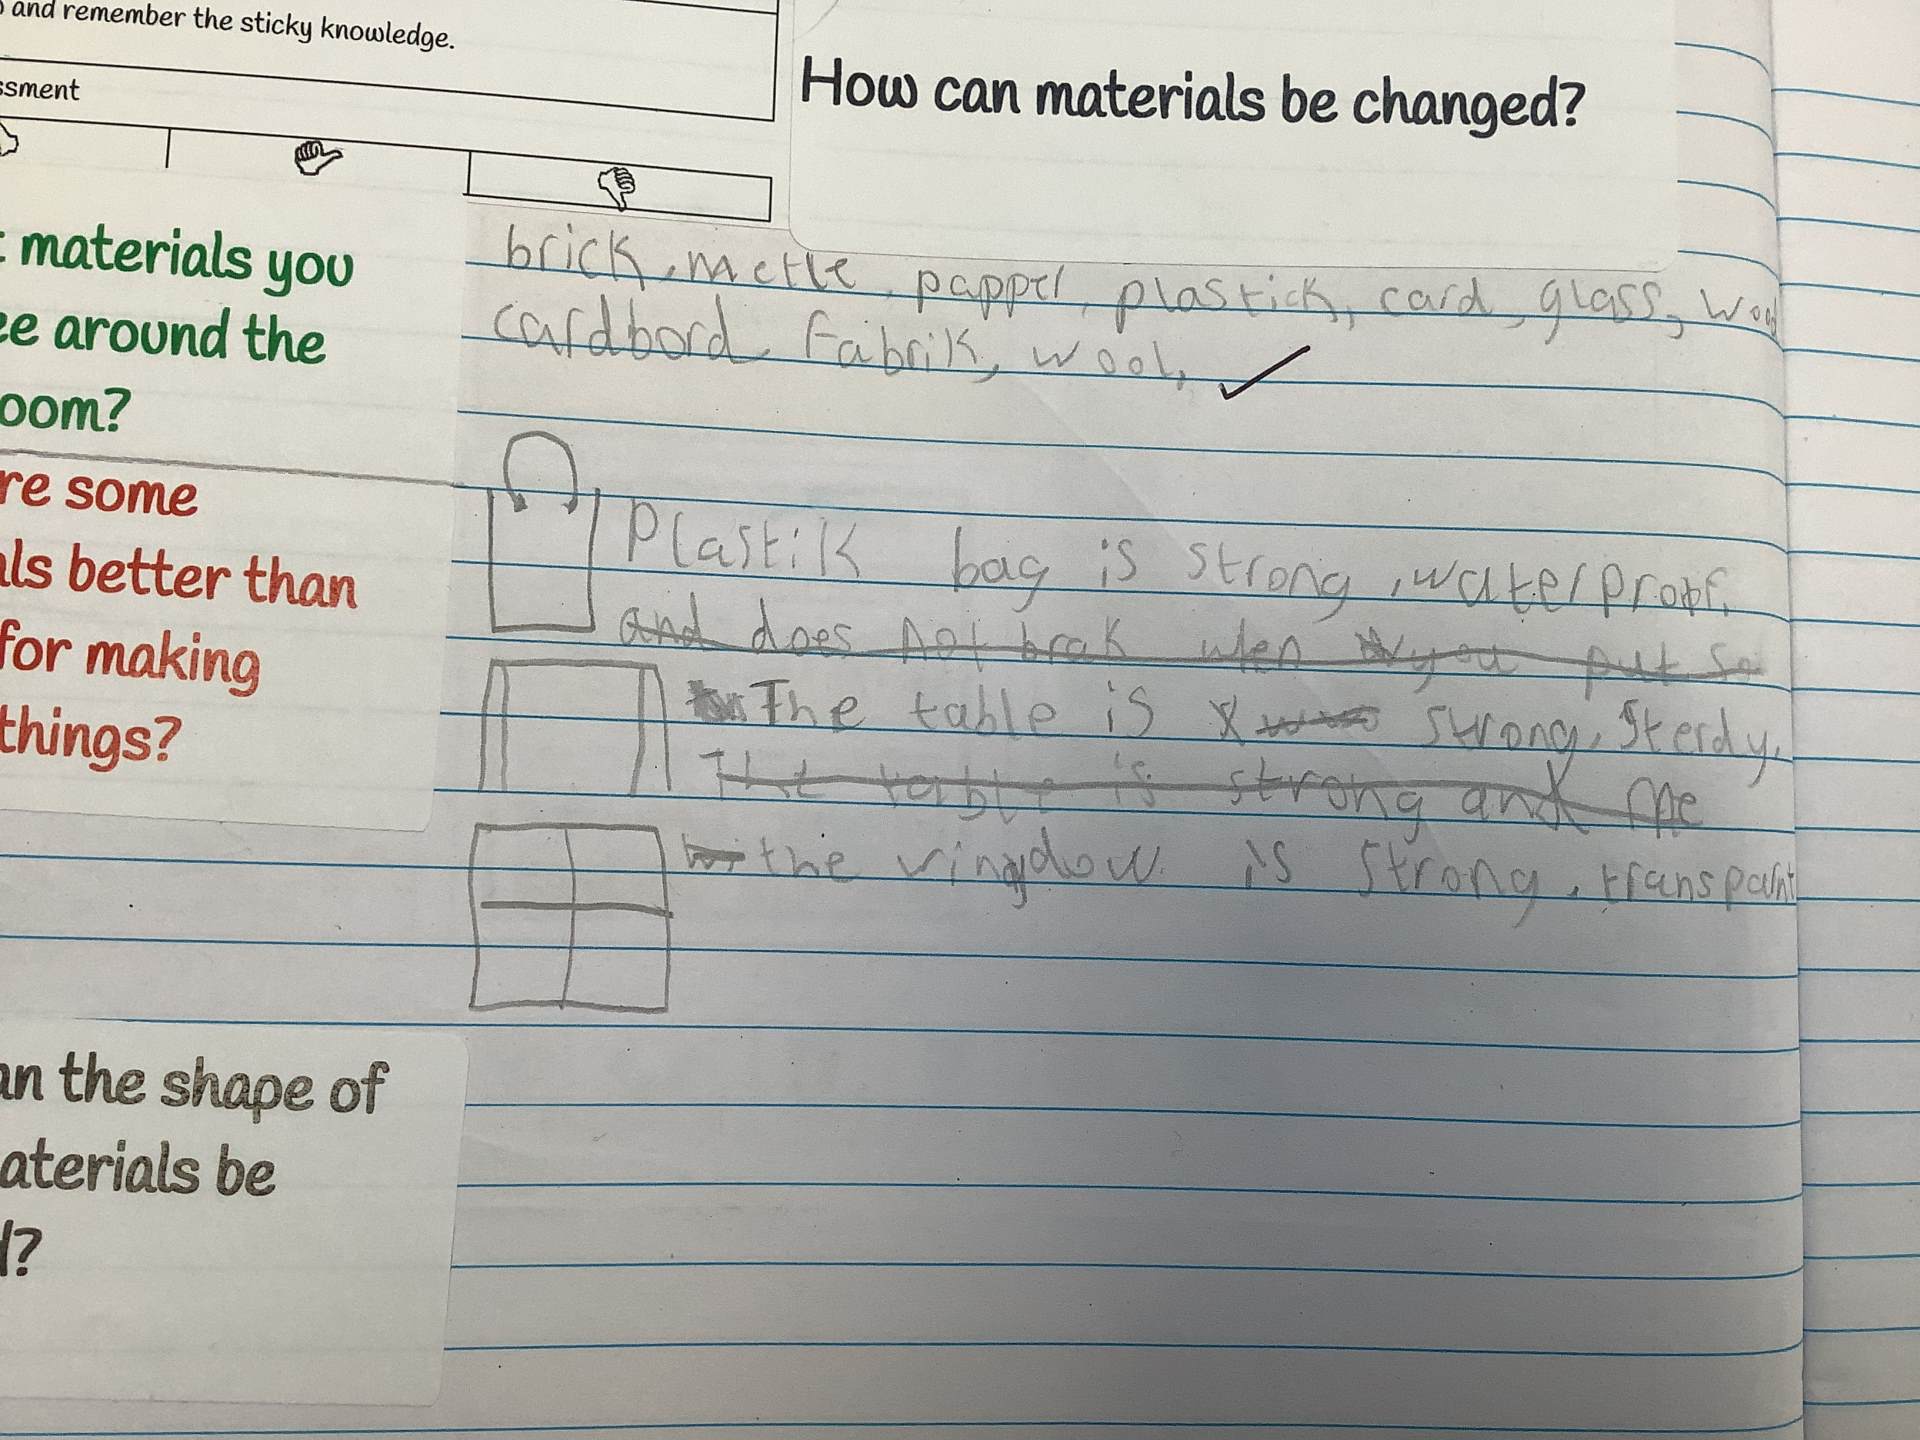 and remember the sticky knowledge.
ssment
How can materials be changed?
materials you
ee around the
oom?
brick, metle, papper, plastick, card, glass, wood
cardbord, fabrik, wool,
re some
als better than
for making
things?
Plastik bag is strong, waterproof,
and does not brak when you put so
The table is strong, sterdy,
The table is strong and
the vingdow is strong, transpant
an the shape of
aterials be
d?